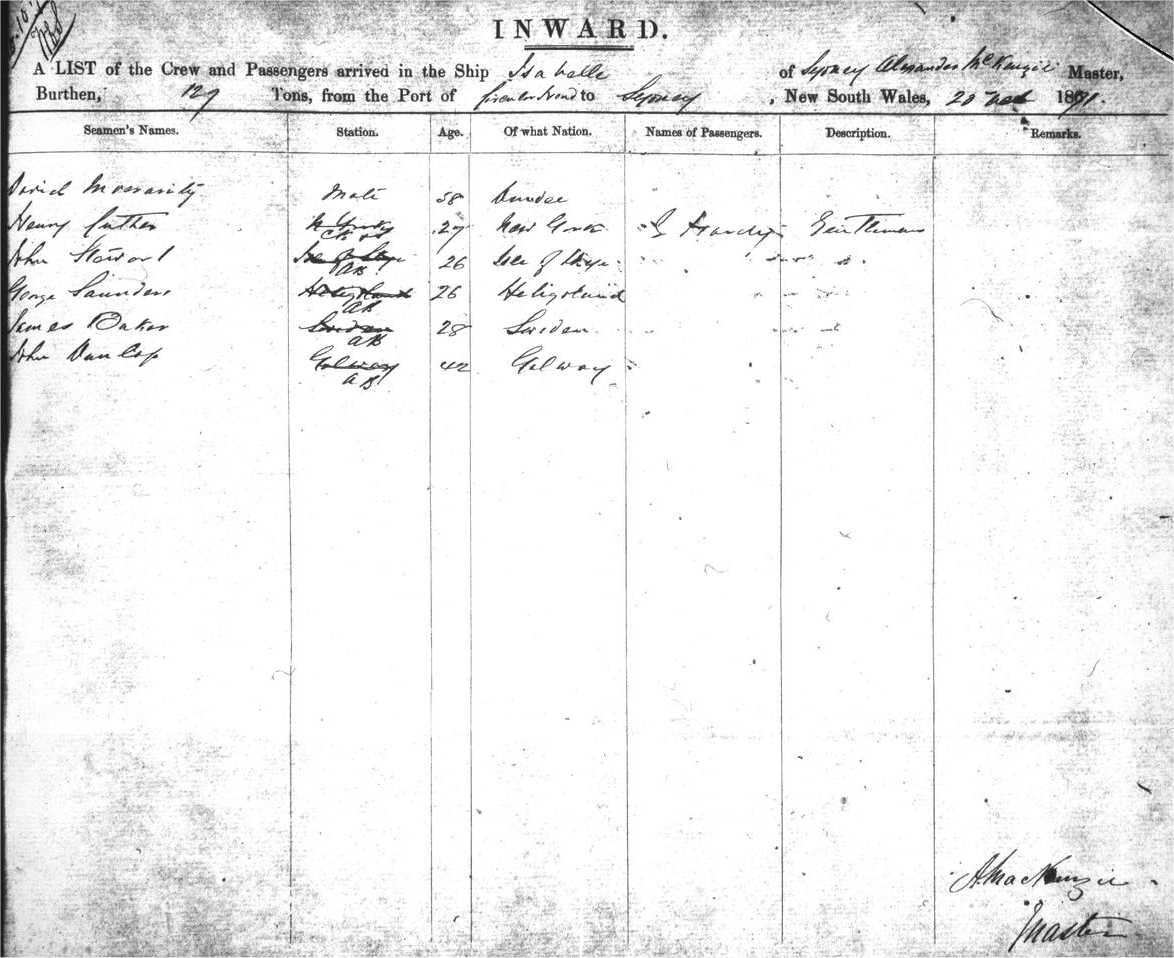 INWARD.
A LIST of the Crew and Passengers arrived in the Ship Isabella of Sydney Alexander McKenzie Master,
Burthen, 129 Tons, from the Port of to Sydney, New South Wales, 20 1871.
Seamen's Names. Station. Age. Of what Nation. Names of Passengers. Description. Remarks.
David Mate 38 Dundee
Henry 27 New Hardy Gentleman
John Stewart AB 26 Isle of Skye
George Saunders Heligoland AB 26 Heligoland
James Baker Sweden AB 28 Sweden
John Dunlop Galway AB 42 Galway
A MacKenzie
Master